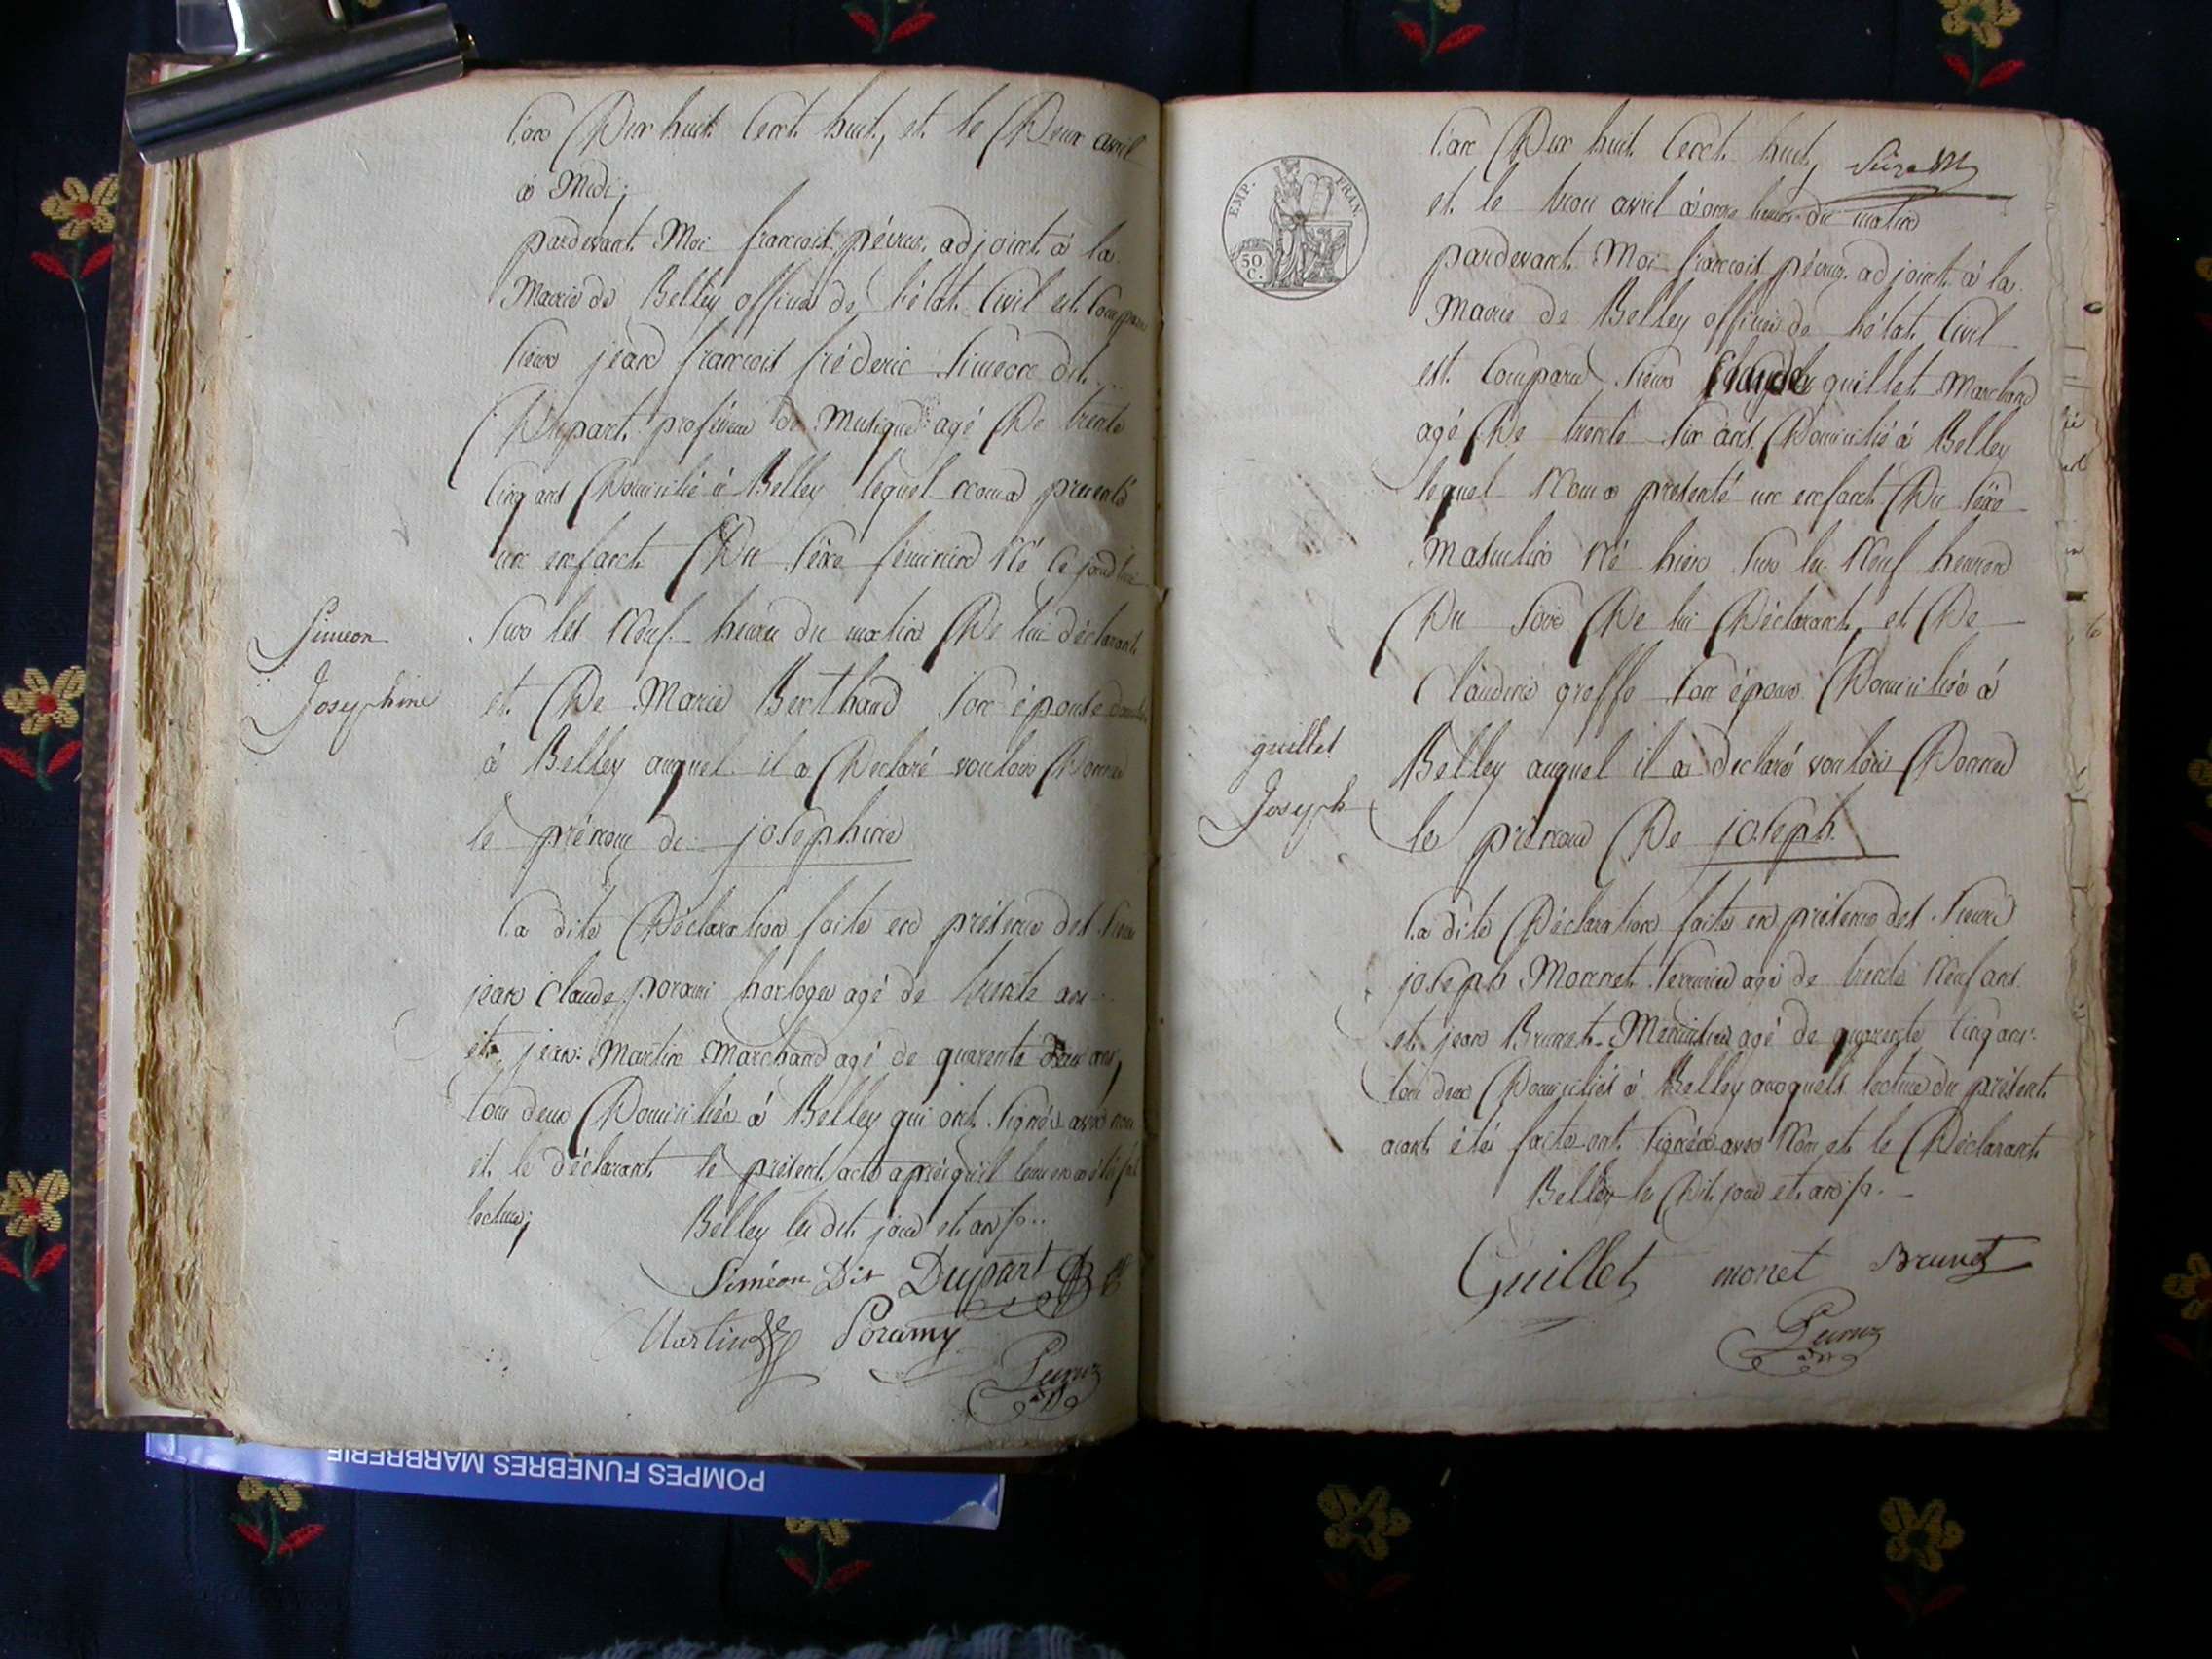 L'an Dix huit Cent huit, et le Deux avril
à Midi;
pardevant Moi françois péirus adjoint à la
Mairie de Belley officier de l'état Civil est Comparu
Sieur jean françois fréderic Simeon dit
Dupart professeur de Musique agé De trente
Cinq ans Domicilié à Belley lequel nous a presenté
un enfant Du Sexe féminin Né ce jourd'hui
Simeon
Josephine
Sur les Neuf heures du matin De lui déclarant
et De Marie Berthand Son épouse
à Belley auquel il a Déclaré vouloir Donner
le prénom de josephine
La dite Déclaration faite en présence des Sieurs
jean Claude porami horloger agé de trente ans
et jean Martin Marchand agé de quarente deux ans,
tous deux Domiciliés à Belley qui ont Signés avec nous
et le déclarant le présent acte après qu'il leur en a été fait
lecture;
Belley les dit jour et an
Siméon Dit Dupart
Martin Poramy
EMP. FRAN.
50 C.
L'an Dix huit Cent huit,
et le trois avril à onze heures du matin
pardevant Moi françois péiruz adjoint à la
Mairie de Belley officier de l'état Civil
est Comparu Sieur Claude guillet Marchand
agé De trente Six ans Domicilié à Belley
lequel Nous a presenté un enfant Du Sexe
Masculin Né hier Sur les Neuf heures
Du Soir De lui Déclarant, et De
Claudine greffe Son épouse Domiciliée à
guillet
Joseph
Belley auquel il a declaré vouloir Donner
le prénom De joseph.
La dite Déclaration faite en présence des Sieurs
joseph Monnet Serrurier agé de trente Neuf ans
et jean Brunet Menuisier agé de quarente Cinq ans
tous deux Domiciliés à Belley auxquels lecture du présent
ayant été faite ont Signés avec Nous et le Déclarant
Belley les Dit jour et an
Guillet monet Brunet